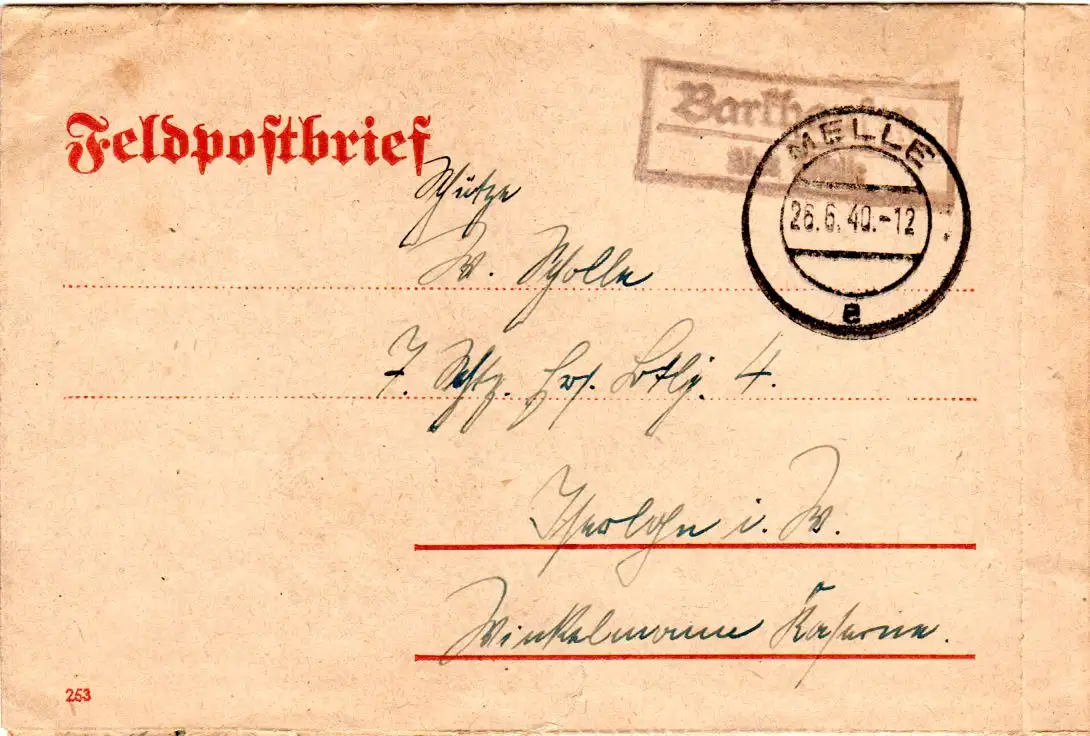 Feldpostbrief
über Melle
MELLE
26.6.40.-12
e
Schütze
W. Scholle
7. Schtz. Ers. Batlj. 4.
Iserlohn i. W.
Winkelmann Kaserne.
253